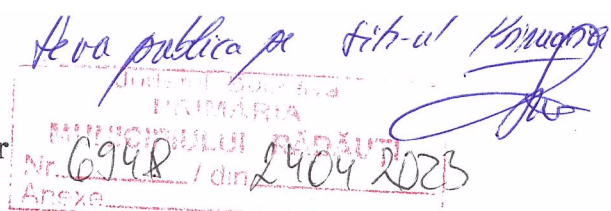 se va publica pe site-ul Primăriei
Județul Suceava
PRIMĂRIA
MUNICIPIULUI RĂDĂUȚI
r Nr. 6948 / din 24 04 2023
Anexe